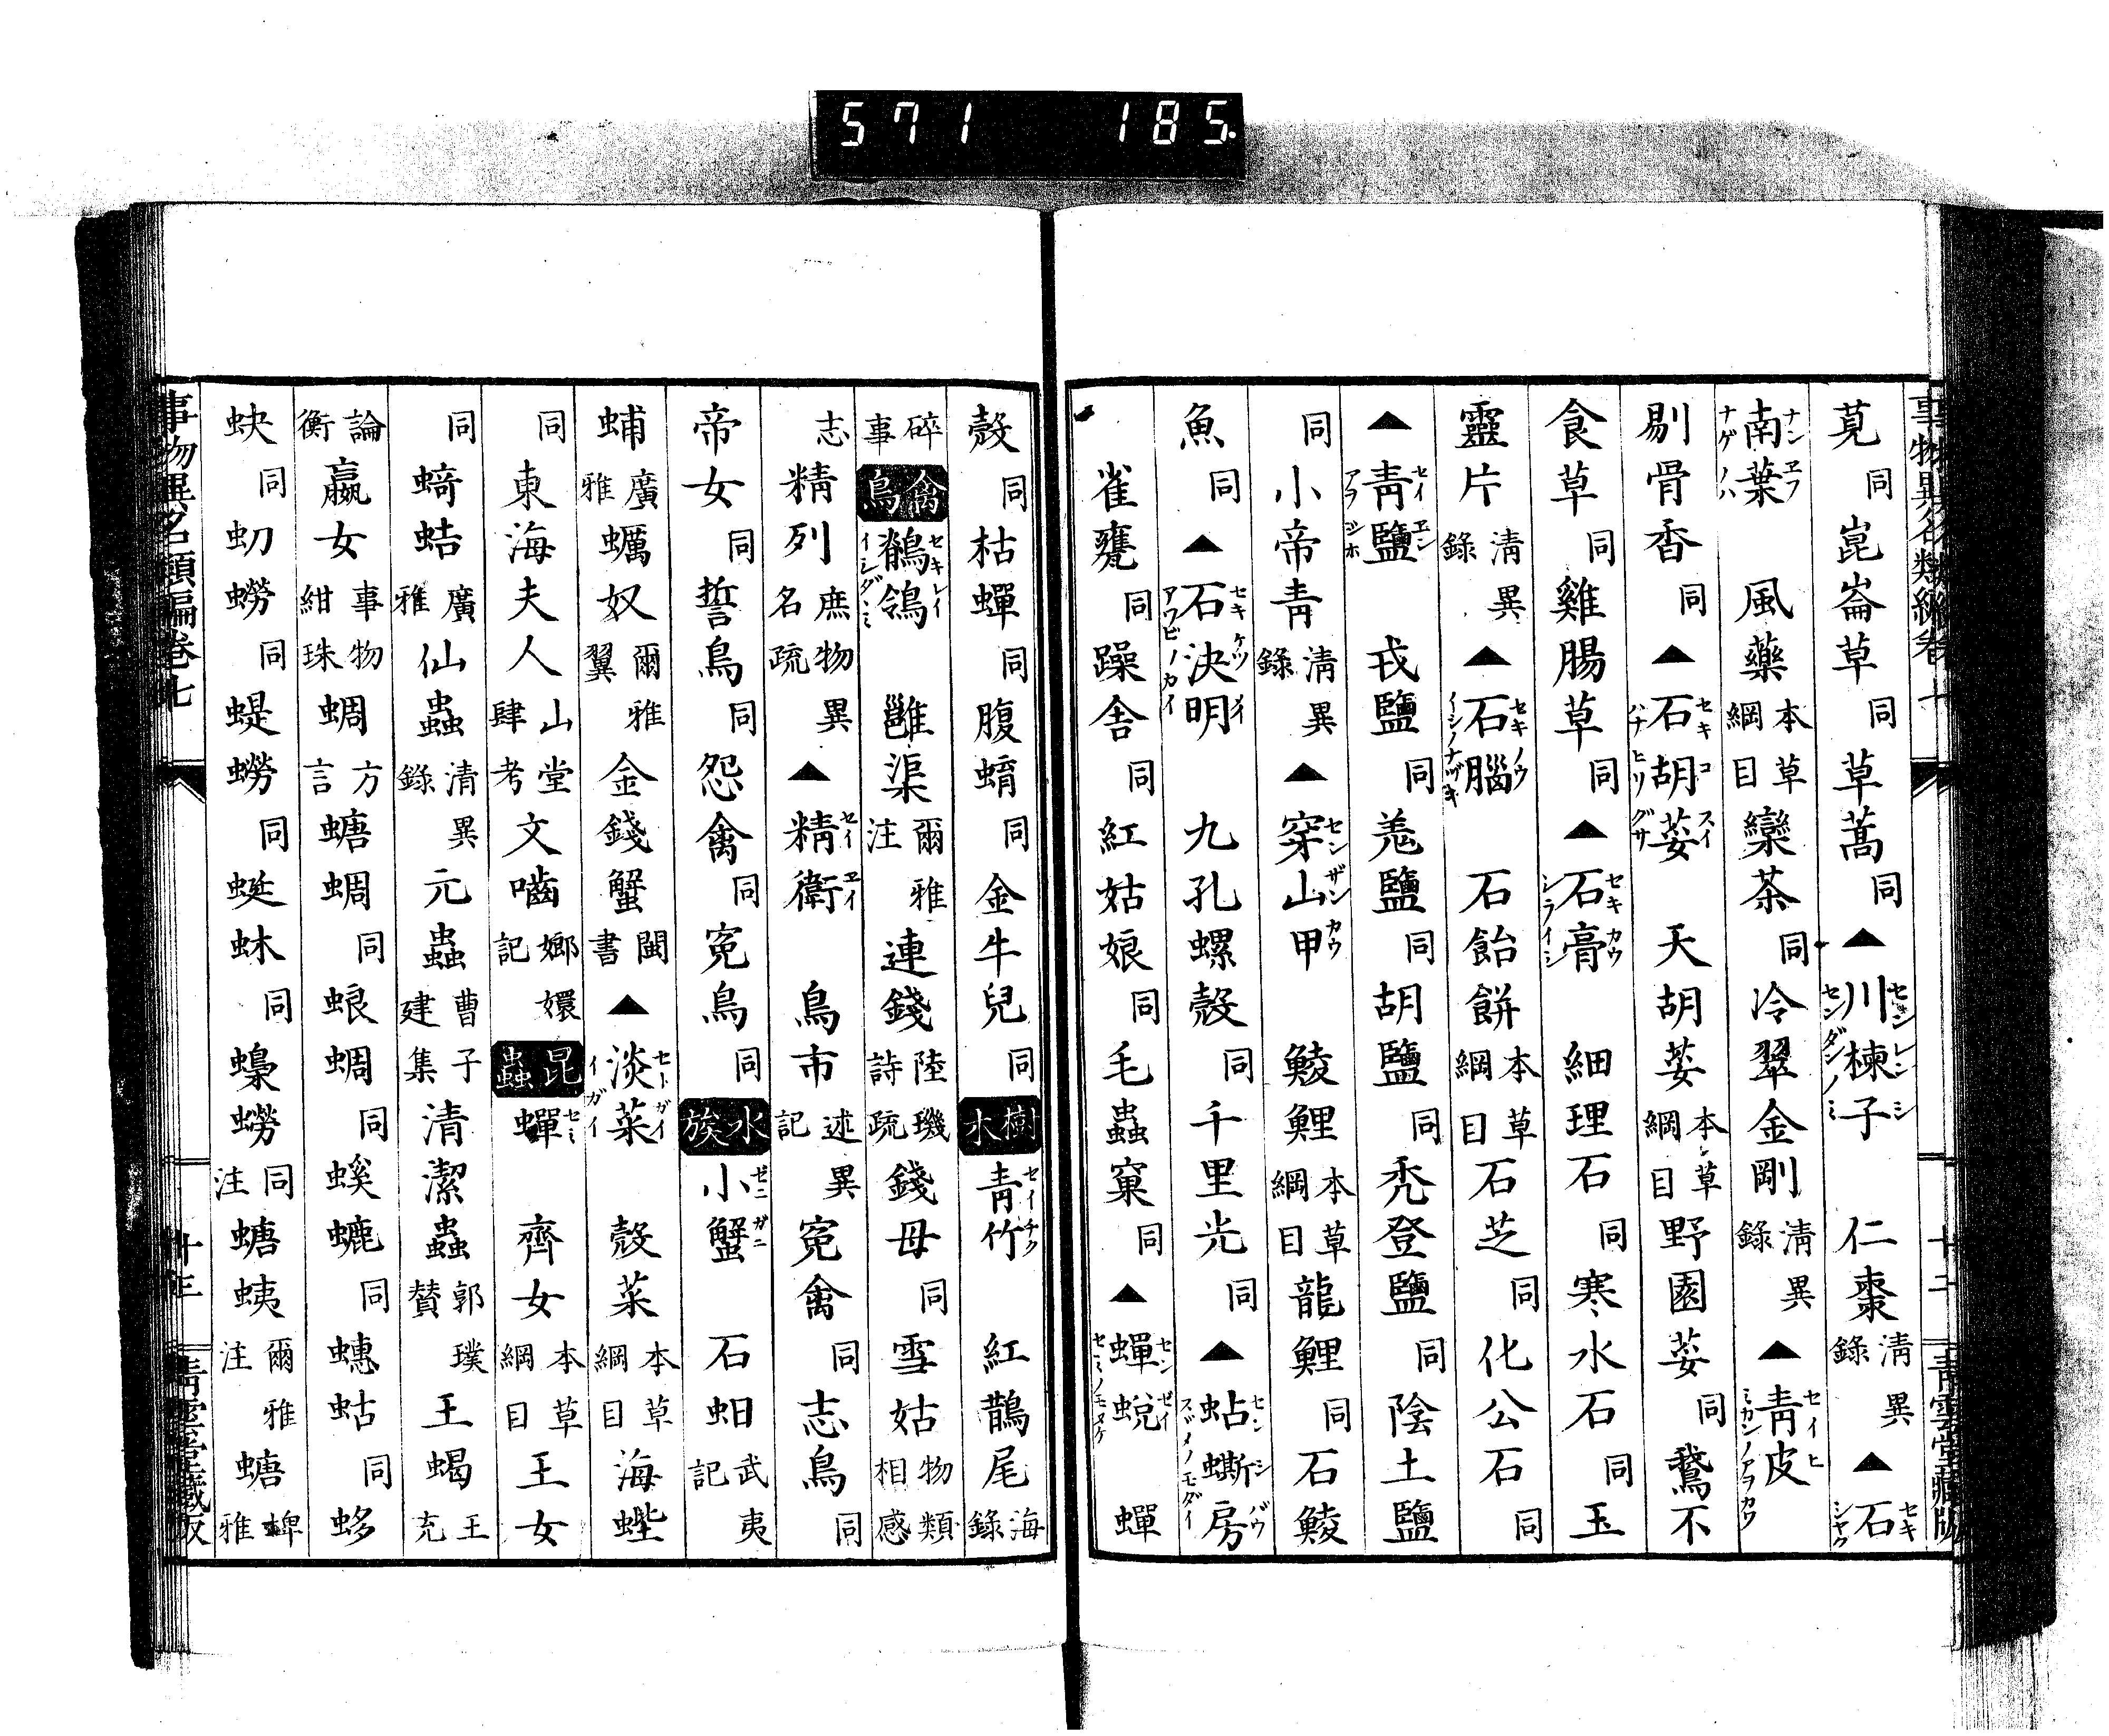 571 185.
莧同崑崙草同草蒿同▲川楝子センレンシセンダンノミ仁棗清異錄▲石セキシヤク
南葉ナンヱフナゲノハ風藥本草綱目欒荼同冷翠金剛清異錄▲青皮セイヒミカンノアヲカワ
剔骨香同▲石胡荽セキコスイハナヒリグサ天胡荽本草綱目野園荽同鵞不
食草同雞腸草同▲石膏セキカウシライシ細理石同寒水石同玉
靈片清異錄▲石腦セキノウイシノナヅキ石飴餅本草綱目石芝同化公石同
▲青鹽セイエンアヲシホ戎鹽同羗鹽同胡鹽同禿登鹽同陰土鹽
同小帝青清異錄▲穿山甲センザンカウ鯪鯉本草綱目龍鯉同石鯪
魚同▲石決明セキケツメイアワビノカイ九孔螺殼同千里光同▲蛅蟖房センシバウスヾメノモダイ
雀甕同躁舍同紅姑娘同毛蟲窠同▲蟬蛻センゼイセミノモヌケ蟬
殼同枯蟬同腹蜟同金牛兒同樹木青竹セイチク紅鵲尾海錄
碎事禽鳥鶺鴒セキレイイシダヽミ雝渠爾雅注連錢陸璣詩疏錢母同雪姑物類相感
志精列庶物異名疏▲精衛セイヱイ鳥市述異記寃禽同志鳥同
帝女同誓鳥同怨禽同寃鳥同水族小蟹ゼニガニ石蚎武夷記
蜅廣雅蠣奴爾雅翼金錢蟹閩書▲淡菜セトガイイガイ殼菜本草綱目海蜌
同東海夫人山堂肆考文嚙嫏嬛記昆蟲蟬セミ齊女本草綱目王女
同蛴蛣廣雅仙蟲清異錄元蟲曹子建集清潔蟲郭璞贊王蝎王充
論衡嬴女事物紺珠蜩方言螗蜩同蜋蜩同螇螰同蟪蛄同蛥
蚗同虭蟧同蝭蟧同蜓蚞同蟂蟧同注螗蛦爾雅注螗蜱雅
事物異名類編卷七 十二 青雲堂藏版